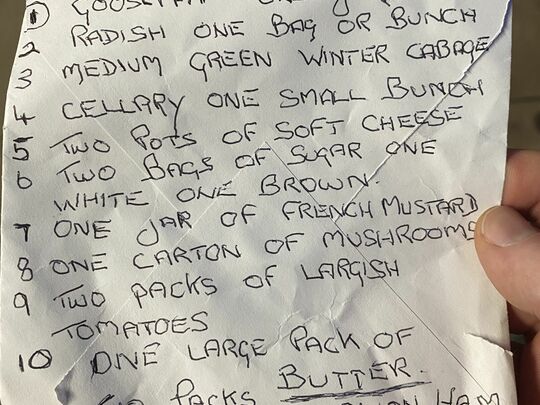 1
2 RADISH ONE BAG OR BUNCH
3 MEDIUM GREEN WINTER CABAGE
4 CELLARY ONE SMALL BUNCH
5 TWO POTS OF SOFT CHEESE
6 TWO BAGS OF SUGAR ONE
WHITE ONE BROWN.
7 ONE JAR OF FRENCH MUSTARD
8 ONE CARTON OF MUSHROOMS
9 TWO PACKS OF LARGISH
TOMATOES
10 ONE LARGE PACK OF
BUTTER.
PACKS HAM